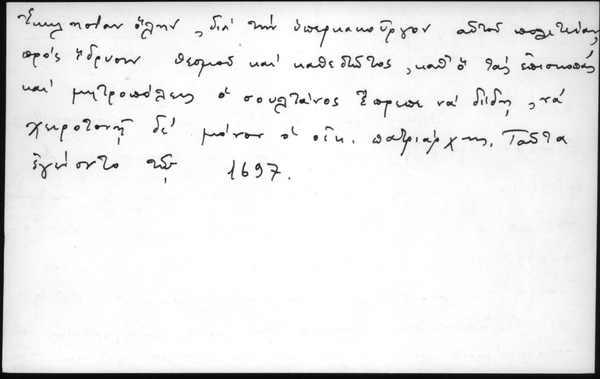 Ἐκκλησίαν ὅλην, διὰ τὴν ὑπερκακοῦργον αὐτοῦ πολιτείαν,
πρὸς ἵδρυσιν θεσμοῦ καὶ καθεστῶτος, καθ' ὃ τὰς ἐπισκοπὰς
καὶ μητροπόλεις ὁ σουλτάνος ἔπρεπε νὰ δίδῃ, νὰ
χειροτονῇ δὲ μόνον ὁ οἰκ. πατριάρχης. Ταῦτα
ἐγένοντο τῷ 1697.